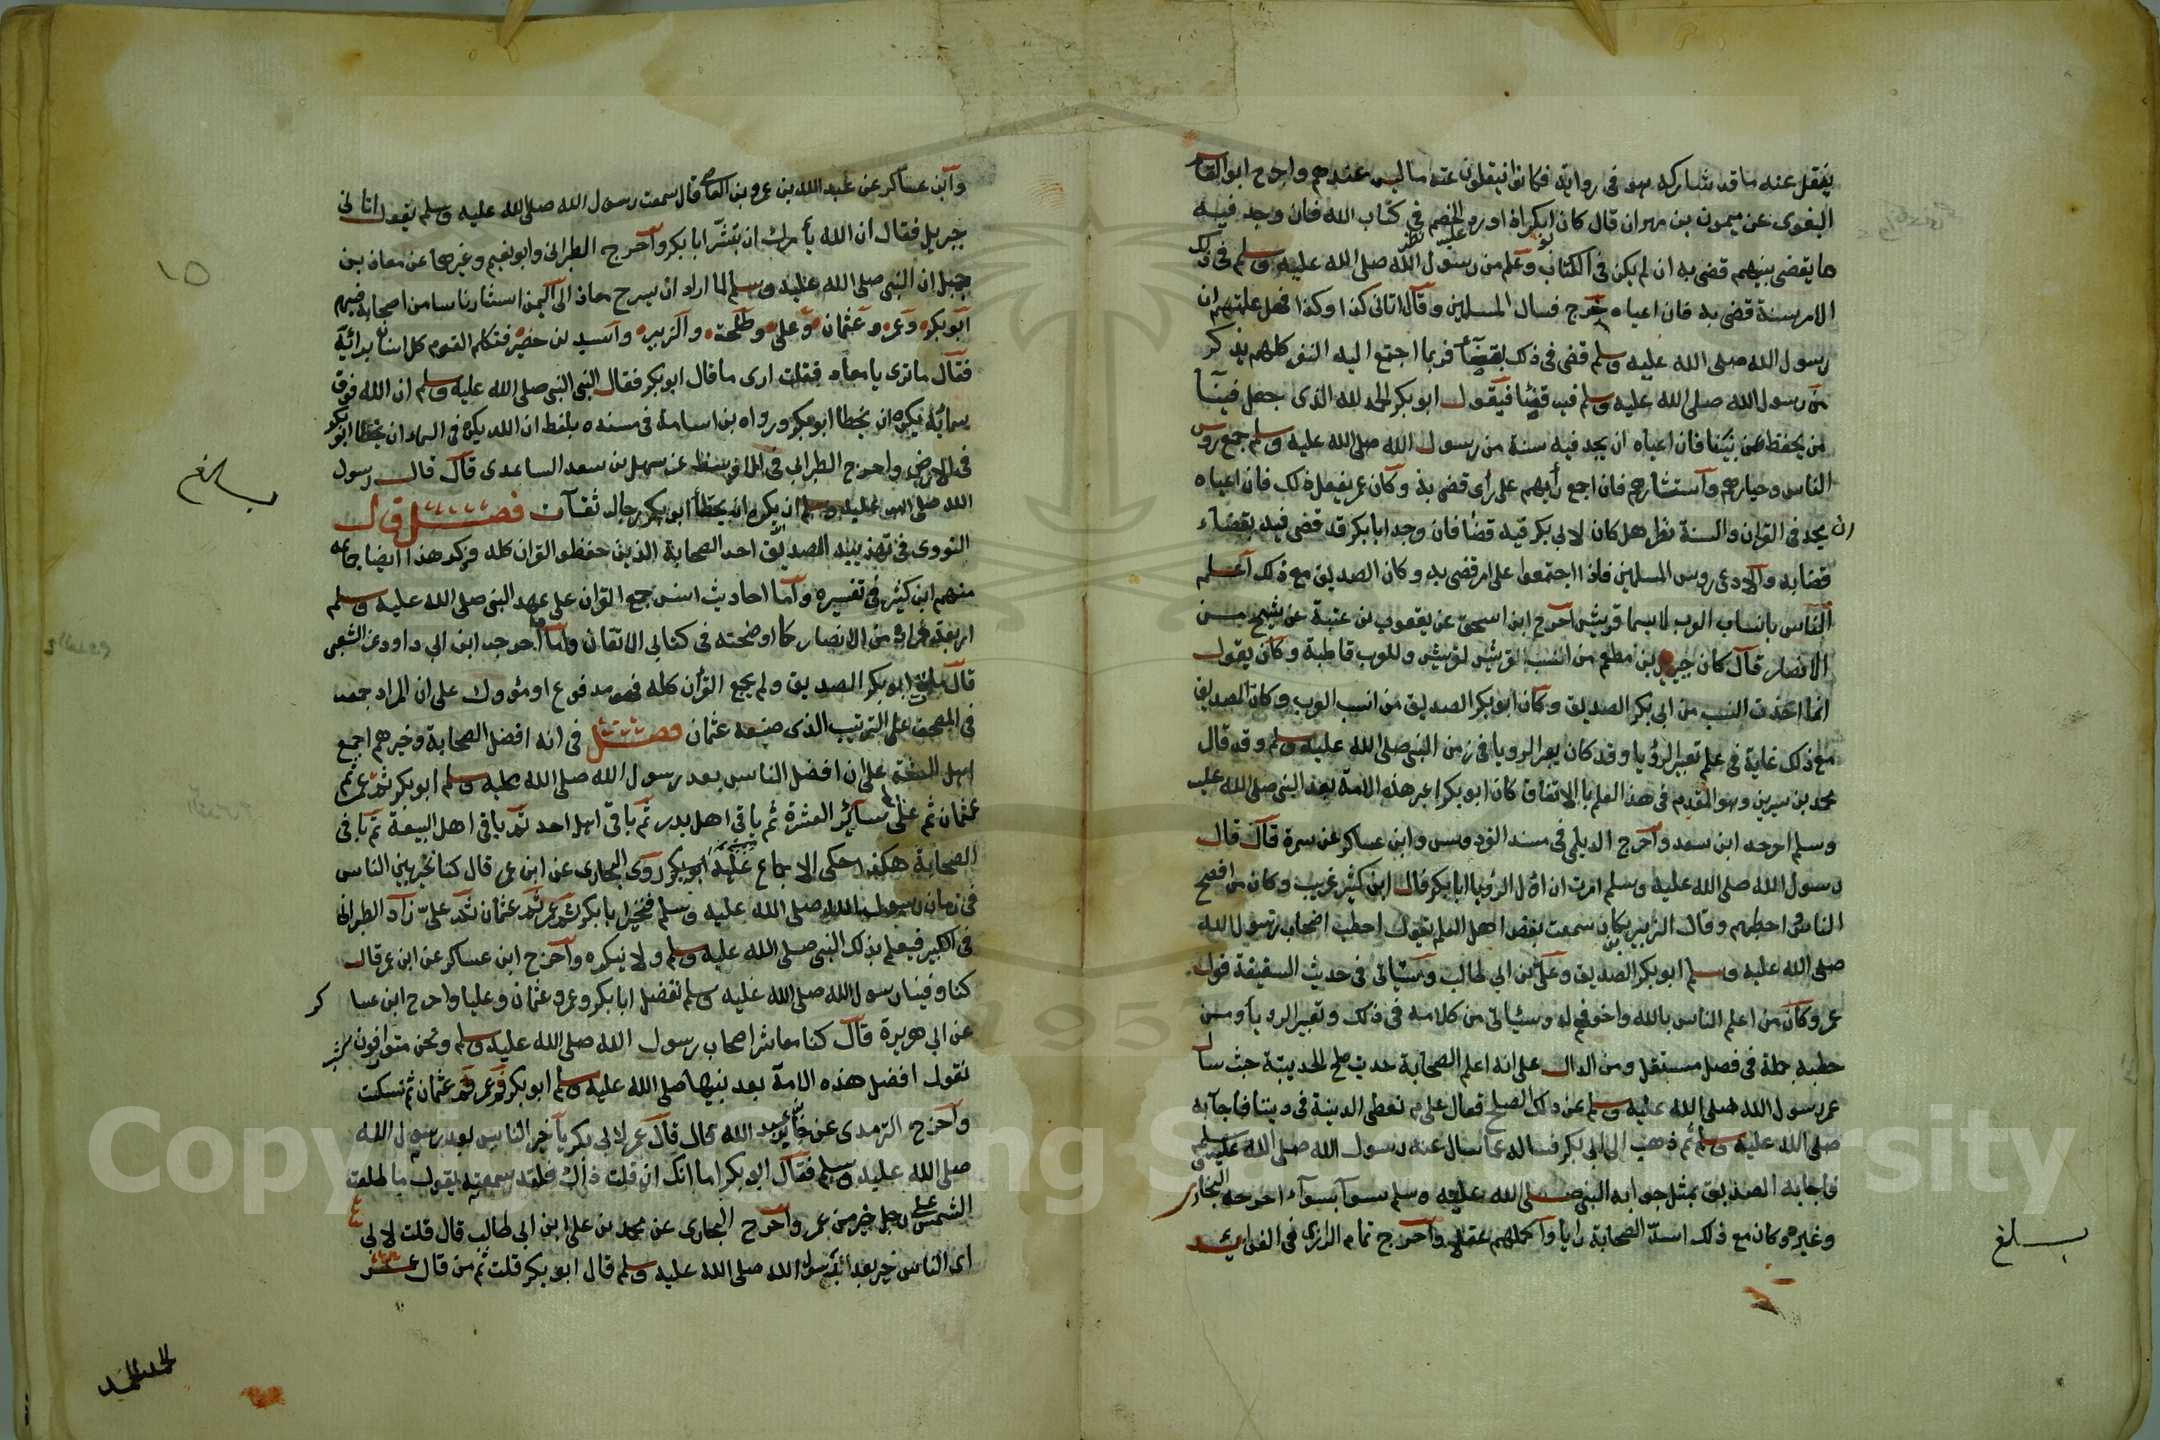 ينقل عنه ما قد شاركه هو في روايته فكانوا ينقلون عنه ما ليس عندهم واخرج ابو القاسم
البغوى عن ميمون بن مهران قال كان ابو بكر اذا ورد عليه الخصم نظر في كتاب الله فان وجد فيه
ما يقضى بينهم قضى به ان لم يكن في الكتاب وعلم من رسول الله صلى الله عليه وسلم في ذلك
الامر سنة قضى به فان اعياه خرج فسال المسلمين وقال اتانى كذا وكذا فهل علمتم ان
رسول الله صلى الله عليه وسلم قضى في ذلك بقضأ فربما اجتمع اليه النفر كلهم يذكر
من رسول الله صلى الله عليه وسلم فيه قضأ فيقول ابو بكر الحمد لله الذى جعل فينا
من يحفظ عن نبينا فان اعياه ان يجد فيه سنة من رسول الله صلى الله عليه وسلم جمع روس
الناس وخيارهم واستشارهم فان اجمع رأيهم على رأى قضى به وكان عمر يفعل ذلك فان اعياه
ان يجد في القران والسنة نظر هل كان لابي بكر فيه قضأ فان وجد ابا بكر قد قضى فيه بقضاء
قضا به والا دعى روس المسلمين فاذا اجتمعوا على امر قضى به وكان الصديق مع ذلك اعلم
الناس بانساب العرب لا سيما قريش اخرج ابن اسحق عن يعقوب بن عتبة عن شيخ من
الانصار قال كان جبير بن مطعم من انسب قريش لقريش وللعرب قاطبة وكان يقول
انما اخذت النسب من ابي بكر الصديق وكان ابو بكر الصديق من انسب العرب وكان الصديق
مع ذلك غاية في علم تعبير الرؤيا وقد كان يعبر الرويا في زمن النبى صلى الله عليه وسلم وقد قال
محمد بن سيرين وهو المقدم في هذا العلم بالاتفاق كان ابو بكر اعبر هذه الامة بعد النبى صلى الله عليه
وسلم اخرجه ابن سعد واخرج الديلمي في مسند الفردوس وابن عساكر عن سمرة قال قال
رسول الله صلى الله عليه وسلم امرت ان اؤل الرؤيا ابا بكر قال ابن كثير غريب وكان من افصح
الناس واخطبهم وقال الزبير بن بكار سمعت بعض اهل العلم يقول اخطب اصحاب رسول الله
صلى الله عليه وسلم ابو بكر الصديق وعلى بن ابي طالب وسياتى في حديث السقيفة قول
عمر وكان من اعلم الناس بالله واخوفهم له وسياتى من كلامه في ذلك وتعبير الرويا ومن
خطبه جملة في فصل مستقل ومن الدال على انه اعلم الصحابة حديث صلح الحديبية حيث سأل
عمر رسول الله صلى الله عليه وسلم عن ذلك الصلح فقال على م نعطى الدنية في ديننا فاجابه
صلى الله عليه وسلم ثم ذهب الى ابي بكر فساله عما سال عنه رسول الله صلى الله عليه وسلم
فاجابه الصديق بمثل جوابه النبى صلى الله عليه وسلم سوآ بسوآء اخرجه البخارى
وغيره وكان مع ذلك اسدّ الصحابة رايا واكملهم عقلا واخرج تمام الرازى في الفوايد
بلغ
وابن عساكر عن عبد الله بن عمرو بن العاص قال سمعت رسول الله صلى الله عليه وسلم يقول اتانى
جبريل فقال ان الله يأمرك ان تستشير ابا بكر واخرج الطبرانى وابو نعيم وغيرهما عن معاذ بن
جبل ان النبى صلى الله عليه وسلم لما اراد ان يسرح معاذ الى اليمن استشار ناسا من اصحابه فيهم
ابو بكر وعمر وعثمان وعلى وطلحة والزبير واسيد بن حضير فتكلم القوم كل انسان برائية
فقال ما ترى يا معاذ فقلت ارى ما قال ابو بكر فقال النبى النبى صلى الله عليه وسلم ان الله فوق
سمائه يكره ان يخطا ابو بكر ورواه بن اسامة في مسنده بلفظ ان الله يكره في السماء ان يخطا ابو بكر
في الارض واخرج الطبراني في الاوسط عن سهل بن سعد الساعدى قال قال رسول
الله صلى الله عليه وسلم ان الله يكره ان يخطأ ابو بكر رجال ثقات فصل قال
النووى في تهذيبه الصديق احد الصحابة الذين حفظو القران كله وذكر هذا ايضا جماعه
منهم ابن كثير في تفسيره واما احاديث انس جمع القران على عهد النبى صلى الله عليه وسلم
اربعة فمراده من الانصار كما اوضحته في كتابي الاتقان واما ما اخرجه ابن ابي داود عن الشعبى
قال مات ابو بكر الصديق ولم يجمع القرأن كله فهو مدفوع او مؤول على ان المراد جمعه
في المصحف على الترتيب الذى صنعه عثمان فصل في انه افضل الصحابة وخيرهم اجمع
اهل السنة على ان افضل الناس بعد رسول الله صلى الله عليه وسلم ابو بكر ثم عمر ثم
عثمان ثم على ثم سائر العشرة ثم باقى اهل بدر ثم باقى اهل احد ثم باقى اهل البيعة ثم باقى
الصحابة هكذا حكى الاجماع عليه ابو منصور روى البخارى عن ابن عمر قال كنا نخير بين الناس
في زمان رسول الله صلى الله عليه وسلم فنخير ابا بكر ثم عمر ثم عثمان ثم على زاد الطبرانى
في الكبير فيعلم بذلك النبى صلى الله عليه وسلم ولا ينكره واخرج ابن عساكر عن ابن عمر قال
كنا وفينا رسول الله صلى الله عليه وسلم نفضل ابا بكر وعمر وعثمان وعليا واخرج ابن عسا كر
عن ابي هريرة قال كنا معاشر اصحاب رسول الله صلى الله عليه وسلم ونحن متوافرون
نقول افضل هذه الامة بعد نبيها صلى الله عليه وسلم ابو بكر ثم عمر ثم عثمان ثم نسكت
واخرج الترمدى عن جابر بن عبد الله قال قال عمر لابي بكر يا خير الناس بعد رسول الله
صلى الله عليه وسلم فقال ابو بكر اما انك ان قلت ذلك فلقد سمعته يقول ما طلعت
الشمس على رجل خير من عمر واخرج البخارى عن محمد بن على ابن ابي طالب قال قلت لابى
اى الناس خير بعد رسول الله صلى الله عليه وسلم قال ابو بكر قلت ثم من قال عمر
١٥
بلغ
Copyright © King Saud University
1957